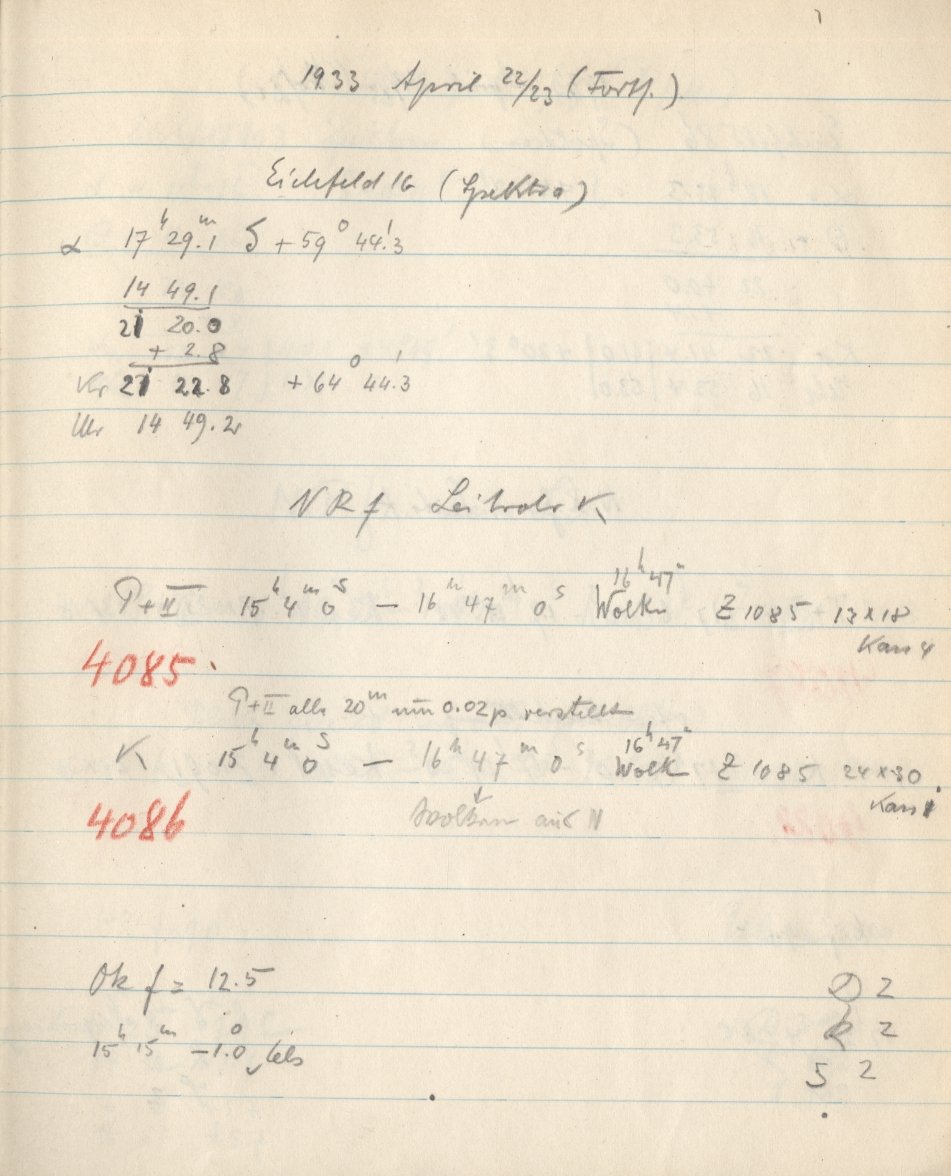 1933 April 22/23 (Forts.)
Eichfeld 16 (Spektra)
α 17ʰ 29.1ᵐ δ +59° 44.3'
14 49.1
21 20.0
+ 2.8
Kr 21 22.8 +64° 44.3'
Uhr 14 49.2
NRf Leitrohr K
P+II 15ʰ 4ᵐ 0ˢ — 16ʰ 47ᵐ 0ˢ 16ʰ47ᵐ Wolkn Z 1085 13x18
Kass 4
4085
P+II alle 20ᵐ um 0.02p verstellt
K 15ʰ 4ᵐ 0ˢ — 16ʰ 47ᵐ 0ˢ 16ʰ47ᵐ Wolk Z 1085 24x30
Kass 1
4086
Wolken aus N
Ok f = 12.5
15ʰ 15ᵐ −1.0° Cels
D 2
R 2
S 2